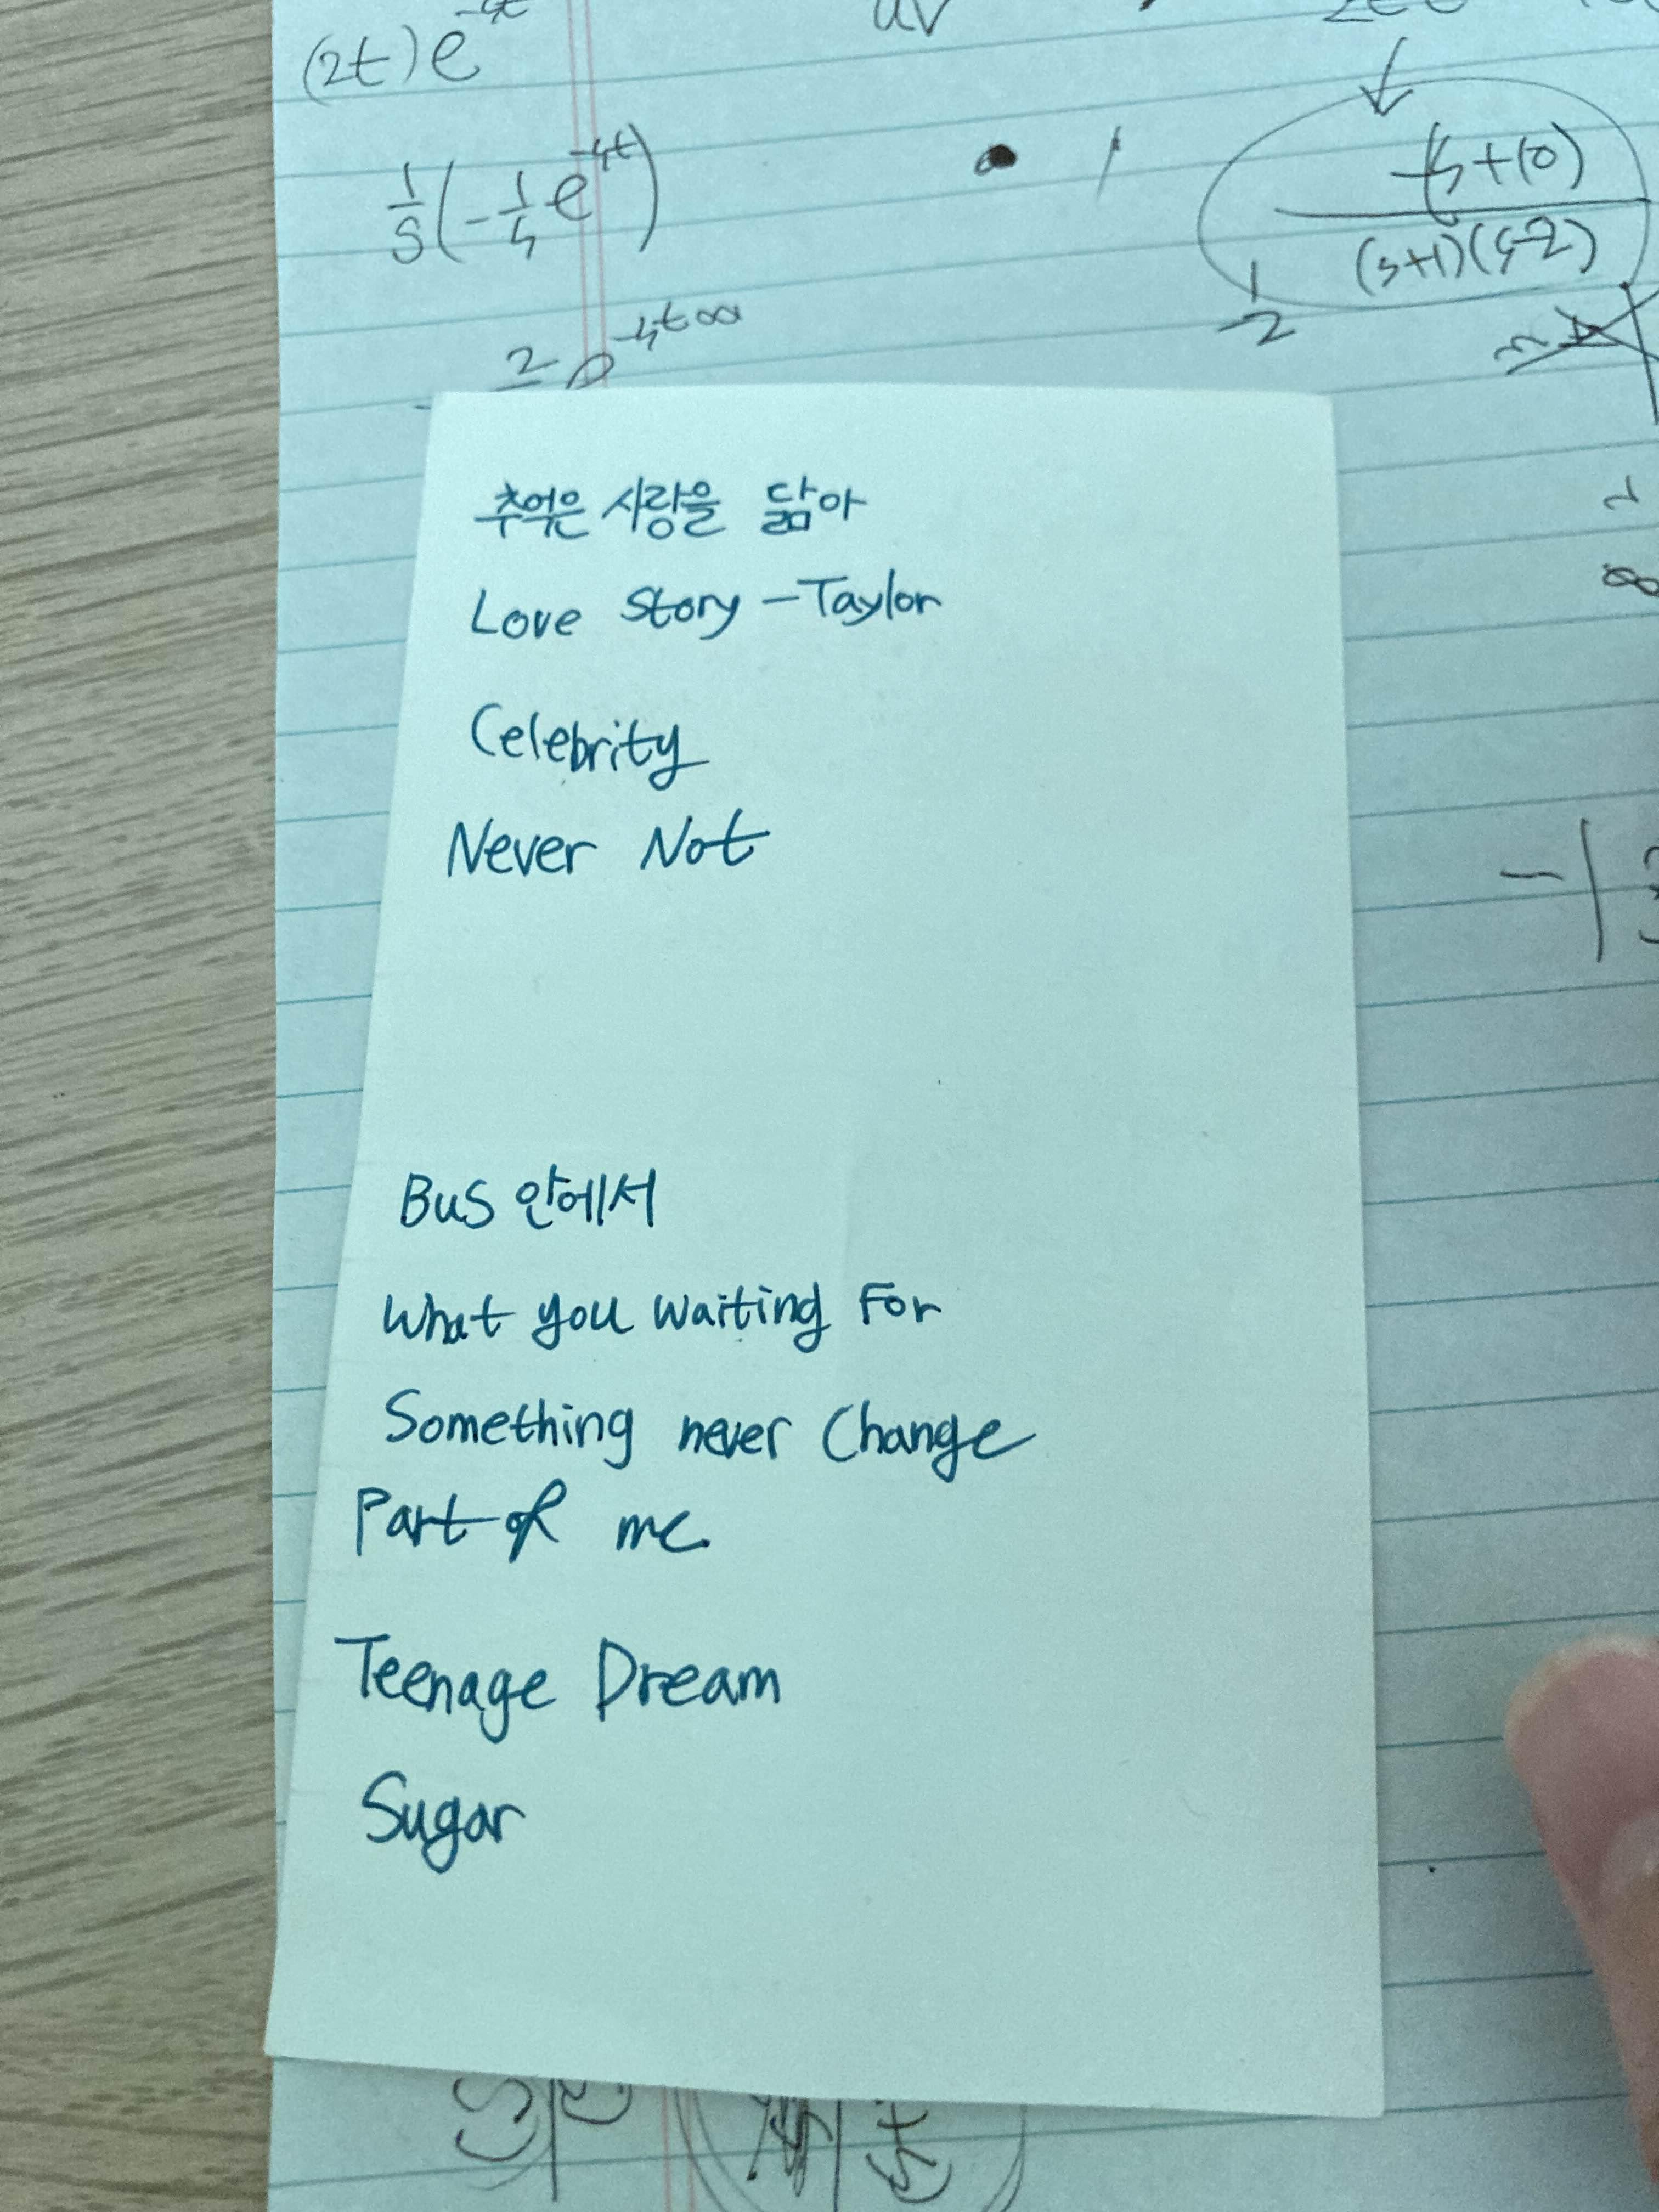 (2t)e
uv
1/s(-1/4 e^-4t)
(s+1)(s-2)
추억은 사랑을 닮아
Love Story - Taylor
Celebrity
Never Not
Bus 안에서
What you waiting For
Something never Change
Part of me
Teenage Dream
Sugar